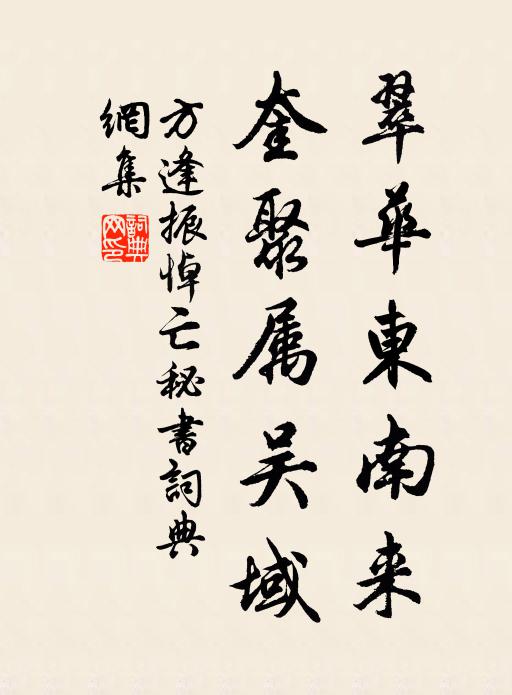 翠華東南来
奎聚属吴域
方逢振悼亡秘書詞典
網集
詞典網印